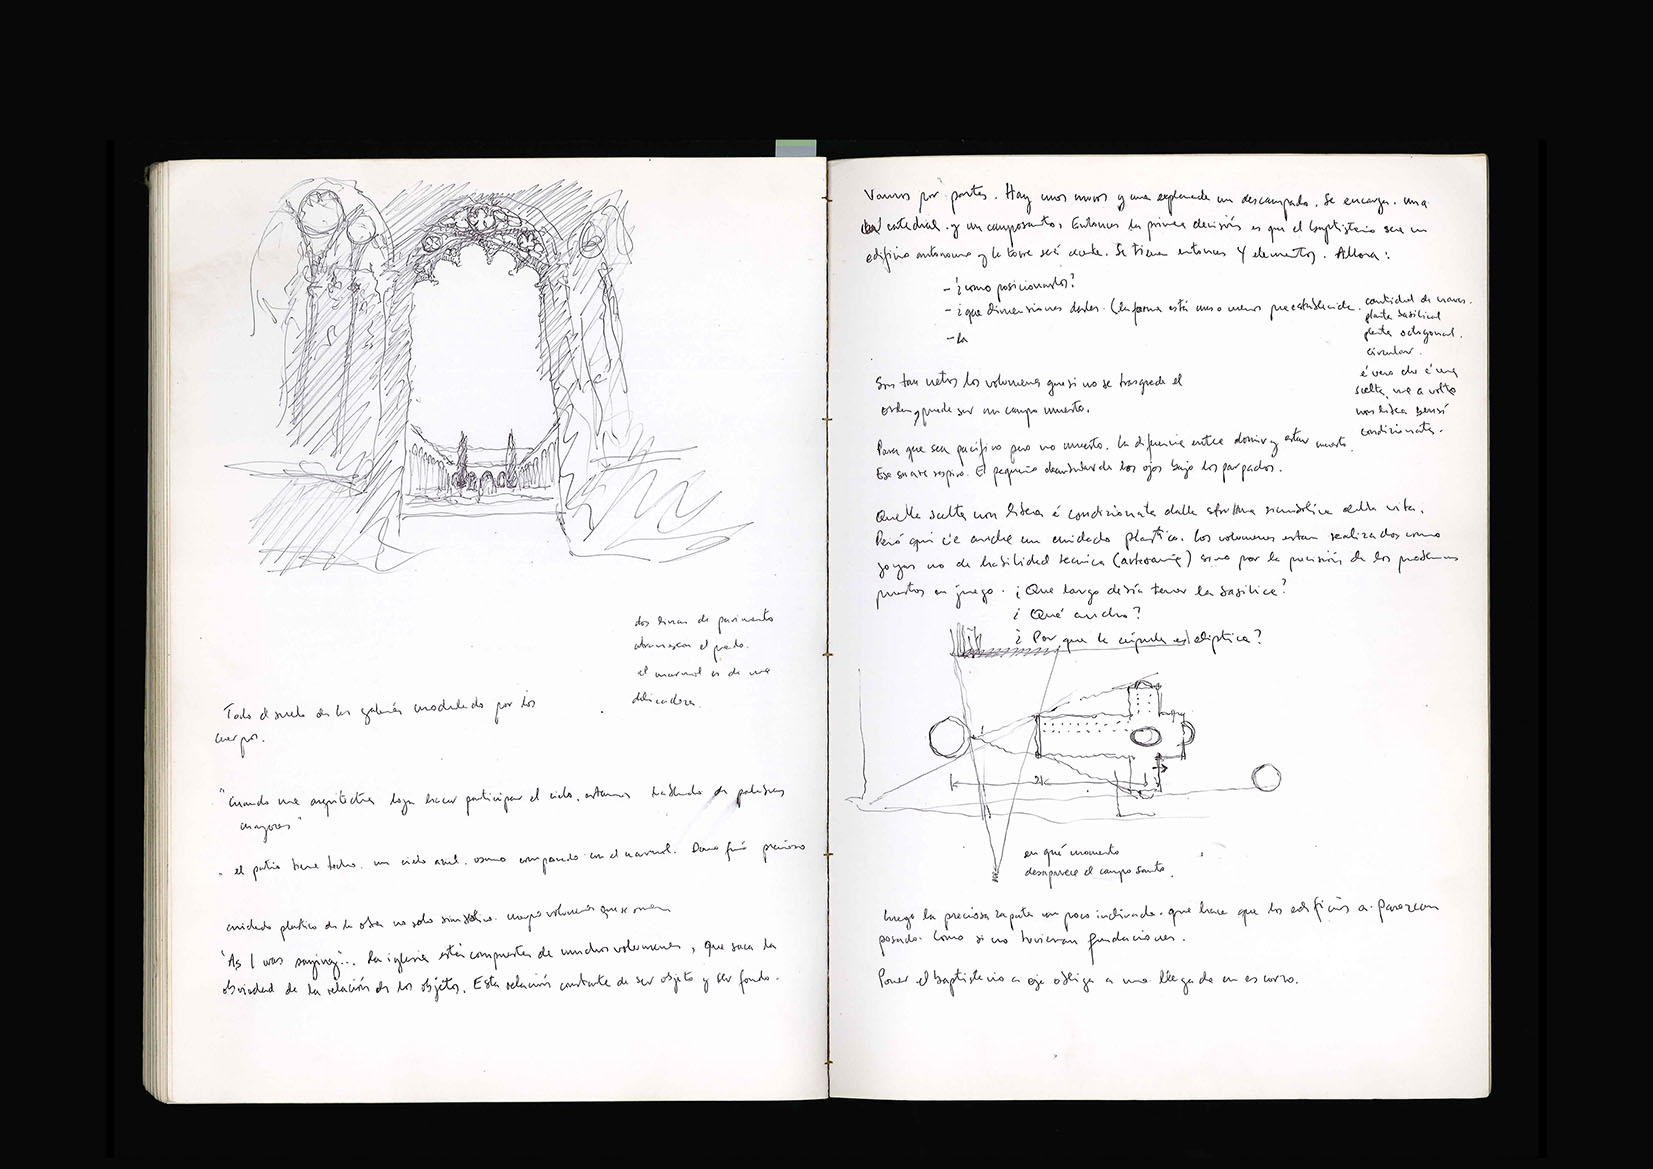 dos líneas de pavimento
atraviesan el prado.
el marmol es de una
delicadeza.
Todo el suelo de las galerías modulado por los
cuerpos.
"Cuando una arquitectura logra hacer participar el cielo, estamos hablando de palabras
mayores"
el patio tiene techo. un cielo azul. comparado con el marmol.
cuidado plastico de la obra no solo simbólico. volumenes que se
"As I was saying"... La iglesia está compuesta de muchos volumenes, que saca la
obviedad de la relación de los objetos. Esta relación constante de ser objeto y ser fondo.
Vamos por partes. Hay unos muros y una explanada un descampado. Se encarga una
catedral y un camposanto. Entonces la primera decisión es que el baptisterio sea un
edificio autonomo y la torre será Se tienen entonces 4 elementos. Allora:
- ¿como posicionarlos?
- ¿que dimensiones darles. (la forma está mas o menos preestablecida.
- La
cantidad de naves.
planta basilical
planta octogonal.
circular.
é vero che é una
scelta, ma a volte
non libera bensí
condizionata.
Son tan netos los volumenes que si no se trasgrede el
orden, puede ser un campo muerto.
Para que sea pacifico pero no muerto. la diferencia entre dormir y estar muerto.
Ese suave respiro. El pequeño de los ojos bajo los parpados.
Quella scelta non libera é condizionata dalla simbolica della vita.
Peró qui c'é anche un cuidado plastico. Los volumenes estan realizados como
joyas no de habilidad tecnica (artesania) sino por la precisión de los problemas
puestos en juego. ¿Que largo debía tener la basilica?
¿Qué ancho?
¿Por que la cúpula es eliptica?
en qué momento
desaparece el campo santo.
Luego la preciosa zapata un poco inclinada. que hace que los edificios parezcan
posado. Como si no tuvieran fundaciones.
Poner el baptisterio a eje obliga a una llegada en escorzo.